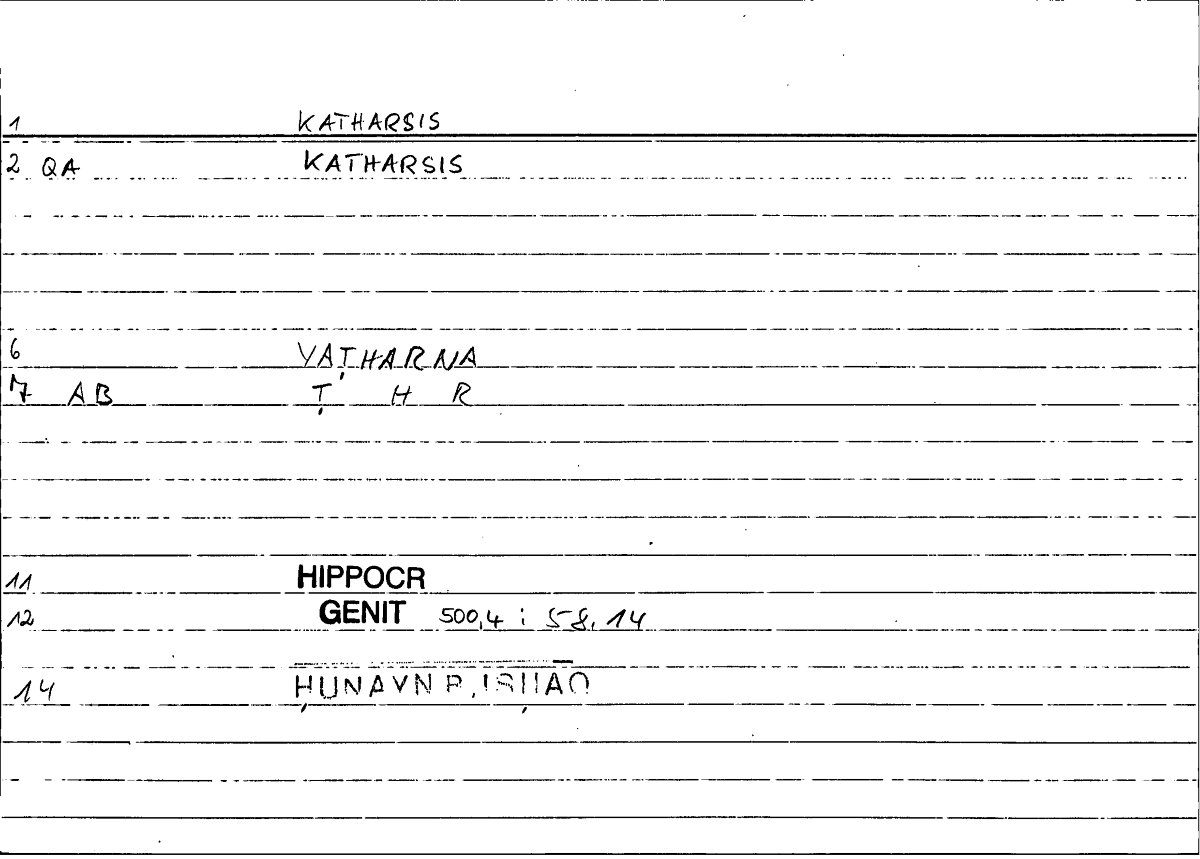 1 KATHARSIS
2 QA KATHARSIS
6 YAṬHARNA
7 AB Ṭ H R
11 HIPPOCR
12 GENIT 500,4 ; 58,14
14 ḤUNAYN B. ISḤAQ